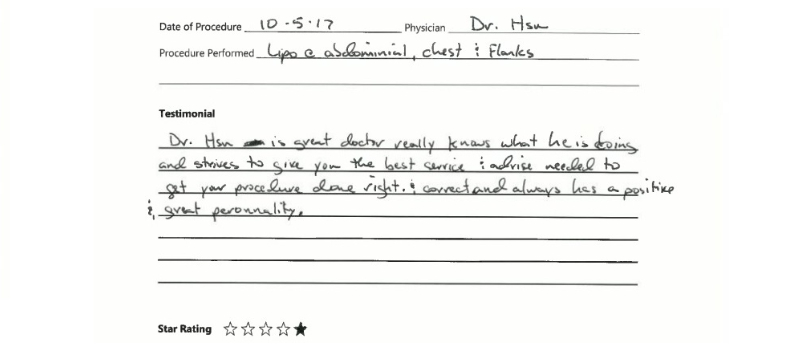 Date of Procedure 10-5-17 Physician Dr. Hsu
Procedure Performed Lipo @ abdominial, chest & Flanks
Testimonial
Dr. Hsu is great doctor really knows what he is doing
and strives to give you the best service & advise needed to
get your procedure done right. & correct and always has a positive
& great peronnality.
Star Rating ☆☆☆☆★